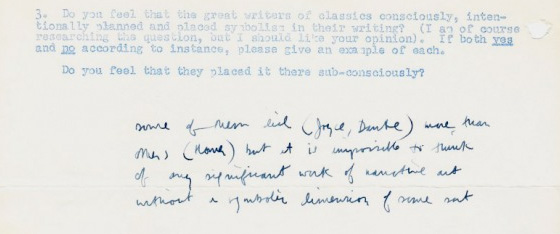 3. Do you feel that the great writers of classics consciously, inten-
tionally planned and placed symbolism in their writing? (I am of course
researching the question, but I should like your opinion). If both yes
and no according to instance, please give an example of each.
Do you feel that they placed it there sub-consciously?
some of them did (Joyce, Dante) more than
others (Homer) but it is impossible to think
of any significant work of narrative art
without a symbolic dimension of some sort